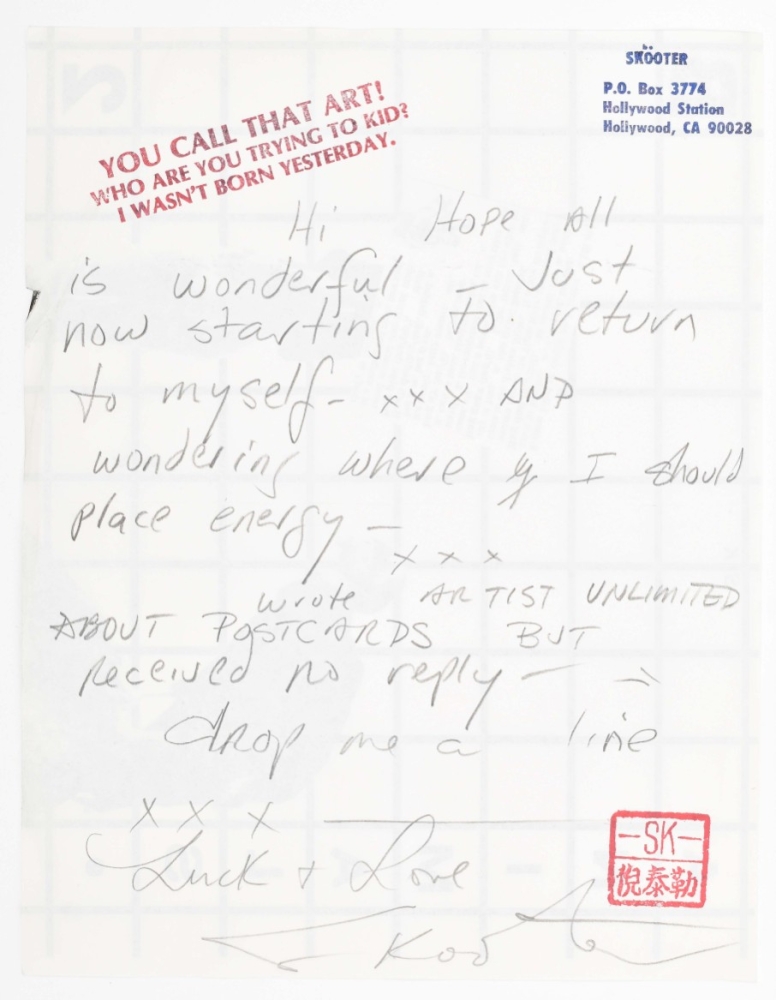 SKÖOTER
P.O. Box 3774
Hollywood Station
Hollywood, CA 90028
YOU CALL THAT ART!
WHO ARE YOU TRYING TO KID?
I WASN'T BORN YESTERDAY.
Hi Hope All
is wonderful – Just
now starting to return
to myself – xxx AND
wondering where I should
place energy –
x x x
wrote ARTIST UNLIMITED
ABOUT POSTCARDS BUT
received no reply –
drop me a line
X X X
Luck + Love
Skooter
–SK–
倪泰勒